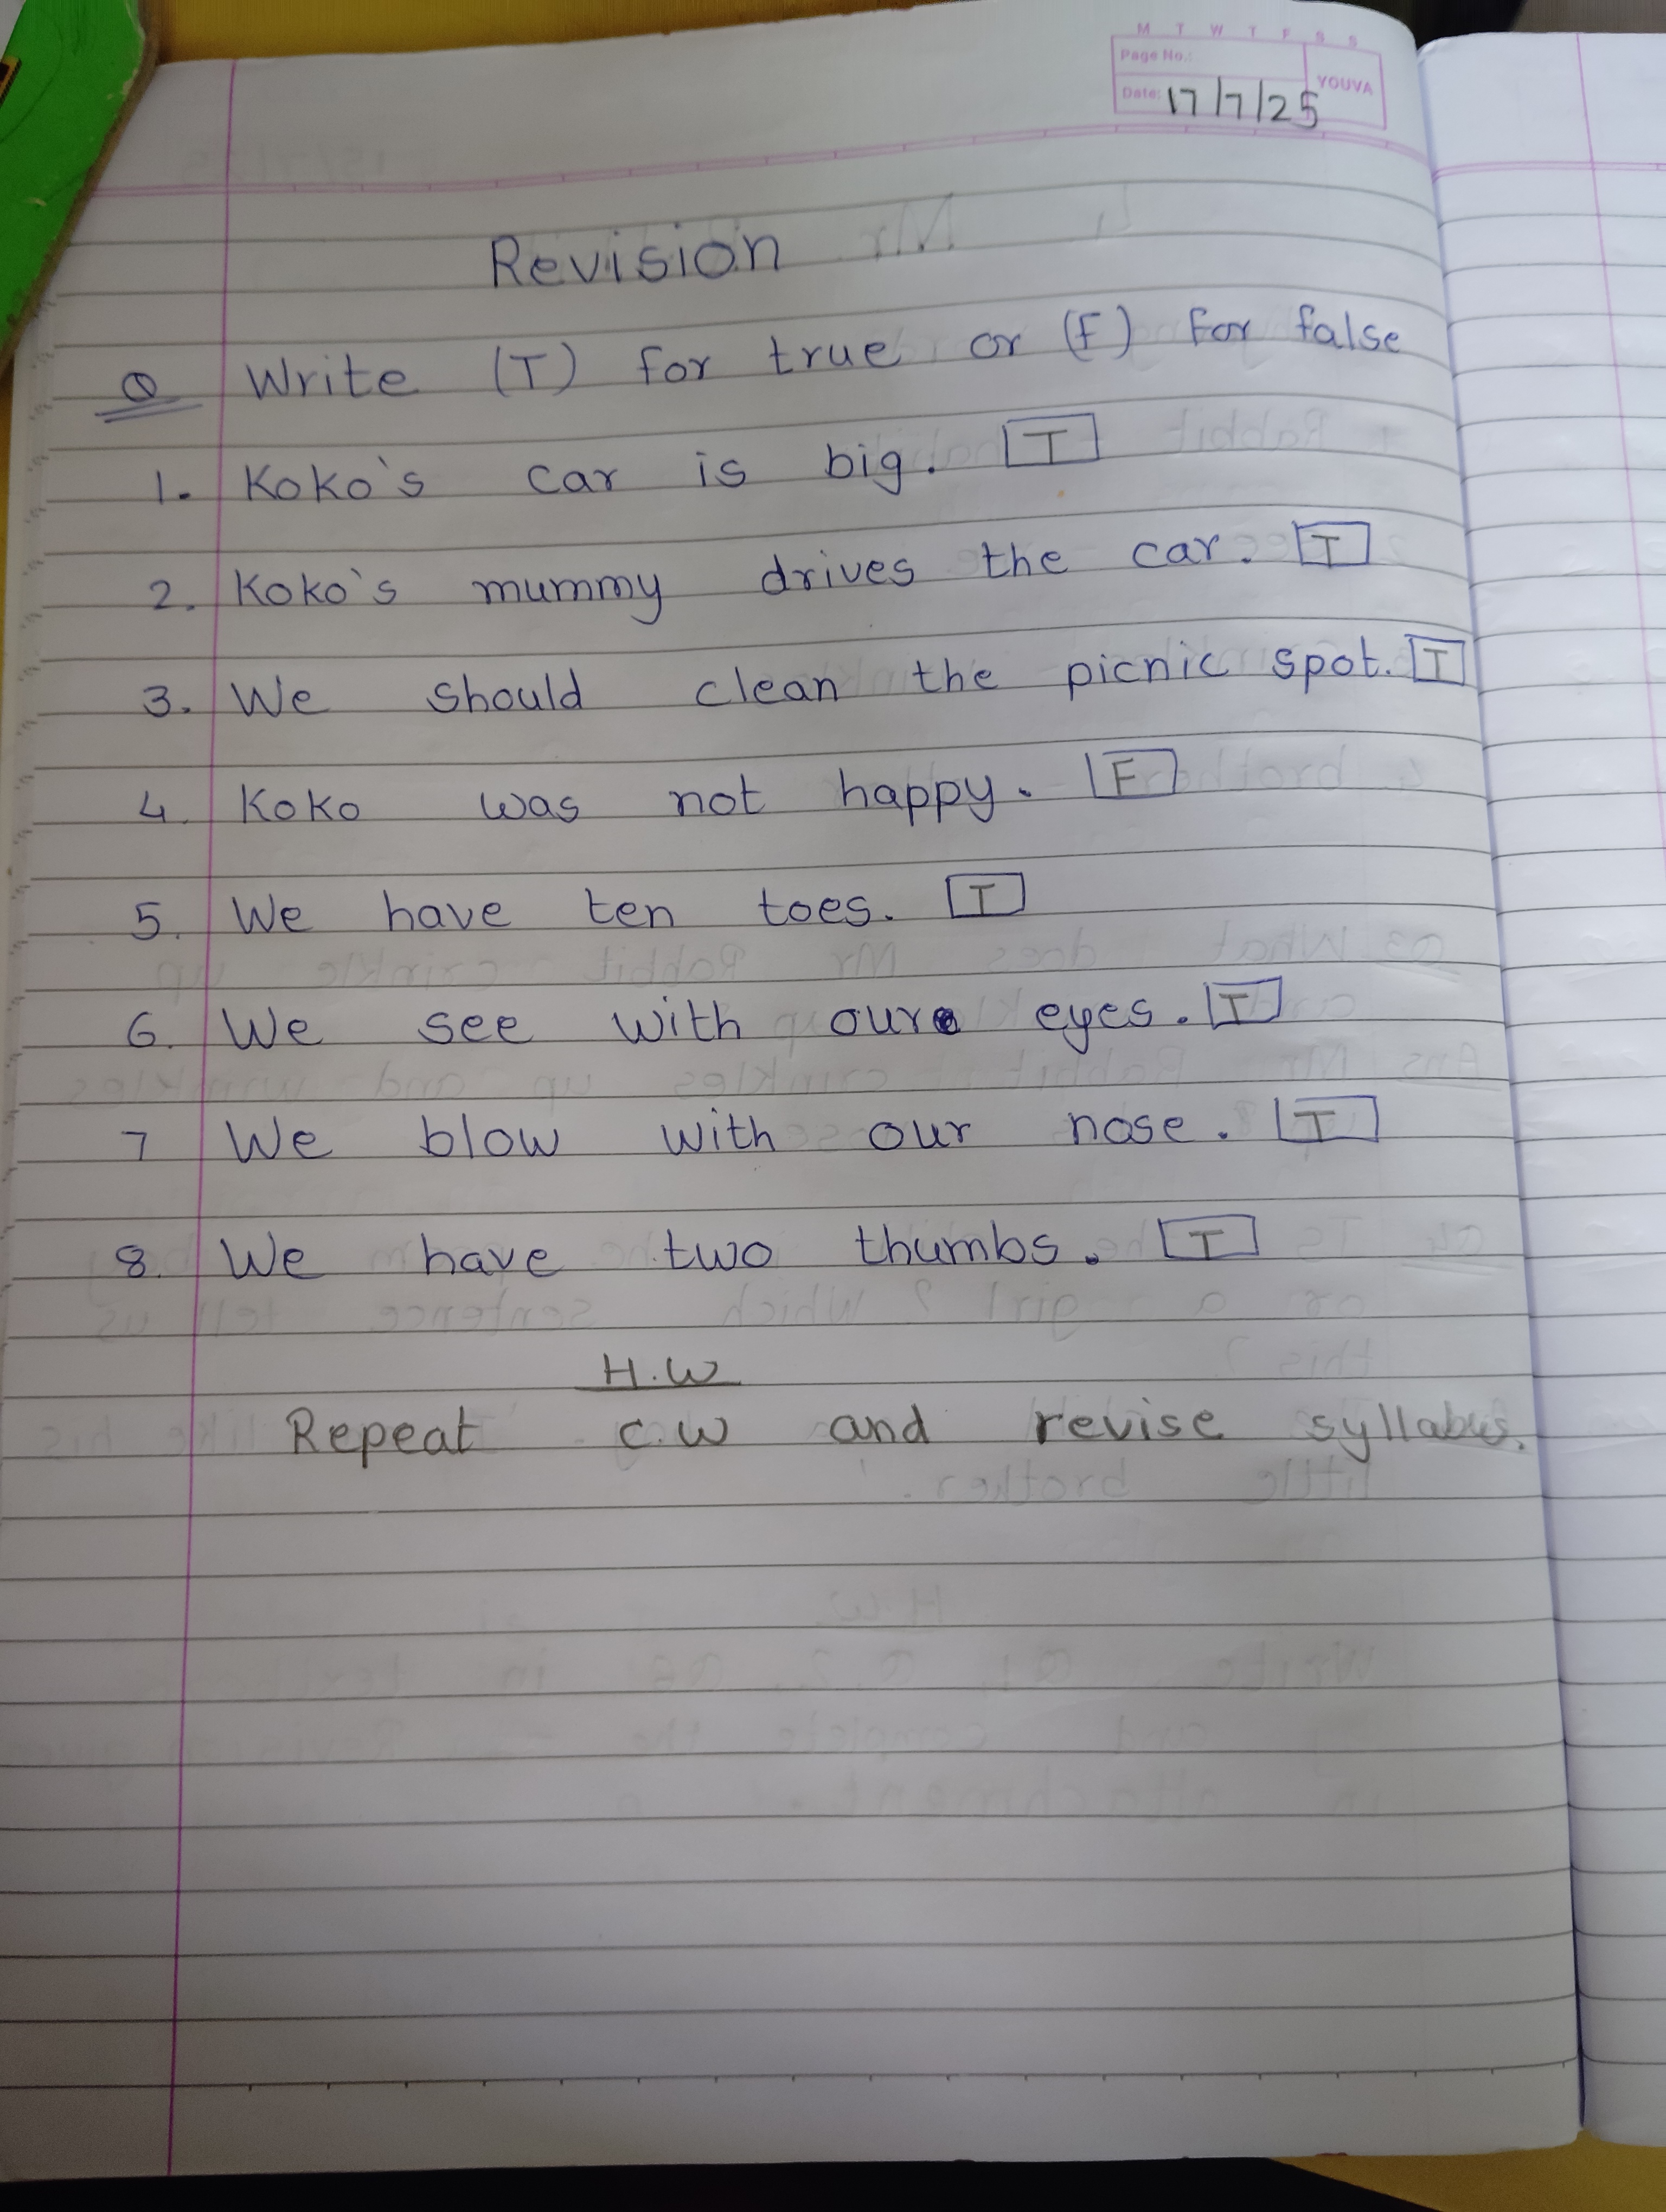 M T W T F S S
Page No.:
YOUVA
Date: 17/7/25
Revision
Q Write (T) for true or (F) For false
1. Koko's car is big. T
2. Koko's mummy drives the car. T
3. We should clean the picnic spot. T
4. Koko was not happy. F
5. We have ten toes. T
6. We see with our eyes. T
7 We blow with our nose. T
8. We have two thumbs. T
H.W
Repeat C.W and revise syllabus.